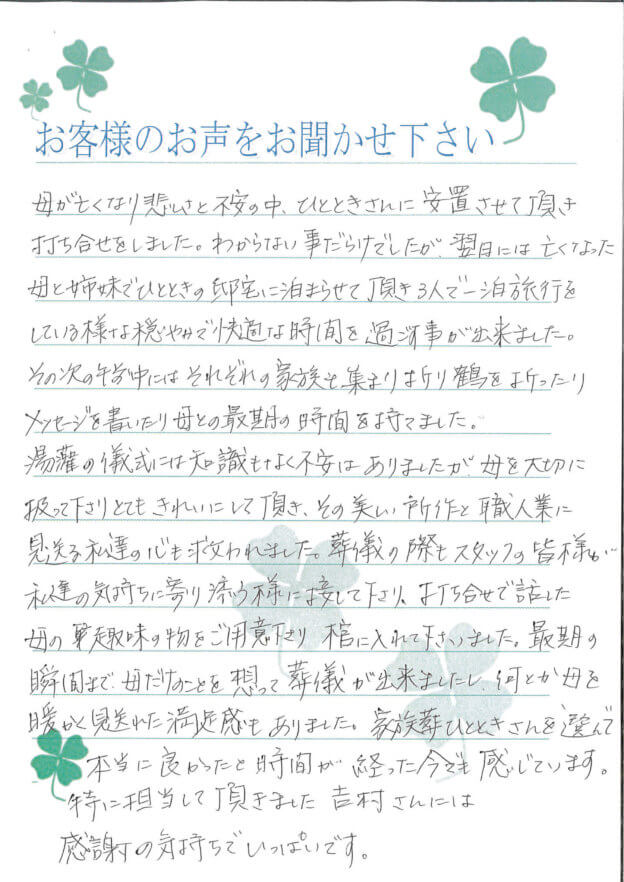 お客様のお声をお聞かせ下さい
母が亡くなり悲しさと不安の中、ひとときさんに安置させて頂き
打ち合せをしました。わからない事だらけでしたが、翌日には亡くなった
母と姉妹でひとときの邸宅に泊まらせて頂き3人で一泊旅行を
している様な穏やかで快適な時間を過ごす事が出来ました。
その次の午前中にはそれぞれの家族も集まり折り鶴を折ったり
メッセージを書いたり母との最期の時間を持てました。
湯灌の儀式には知識もなく不安はありましたが、母を大切に
扱って下さりとてもきれいにして頂き、その美しい所作と職人業に
見送る私達の心も救われました。葬儀の際もスタッフの皆様が
私達の気持ちに寄り添う様に接して下さり、打ち合せで話した
母の 趣味の物をご用意下さり 棺に入れて下さいました。最期の
瞬間まで、母だけのことを想って葬儀が出来ましたし、何とか母を
暖かく見送れた満足感もありました。家族葬ひとときさんを選んで
本当に良かったと時間が経った今でも感じています。
特に担当して頂きました 吉村さんには
感謝の気持ちでいっぱいです。